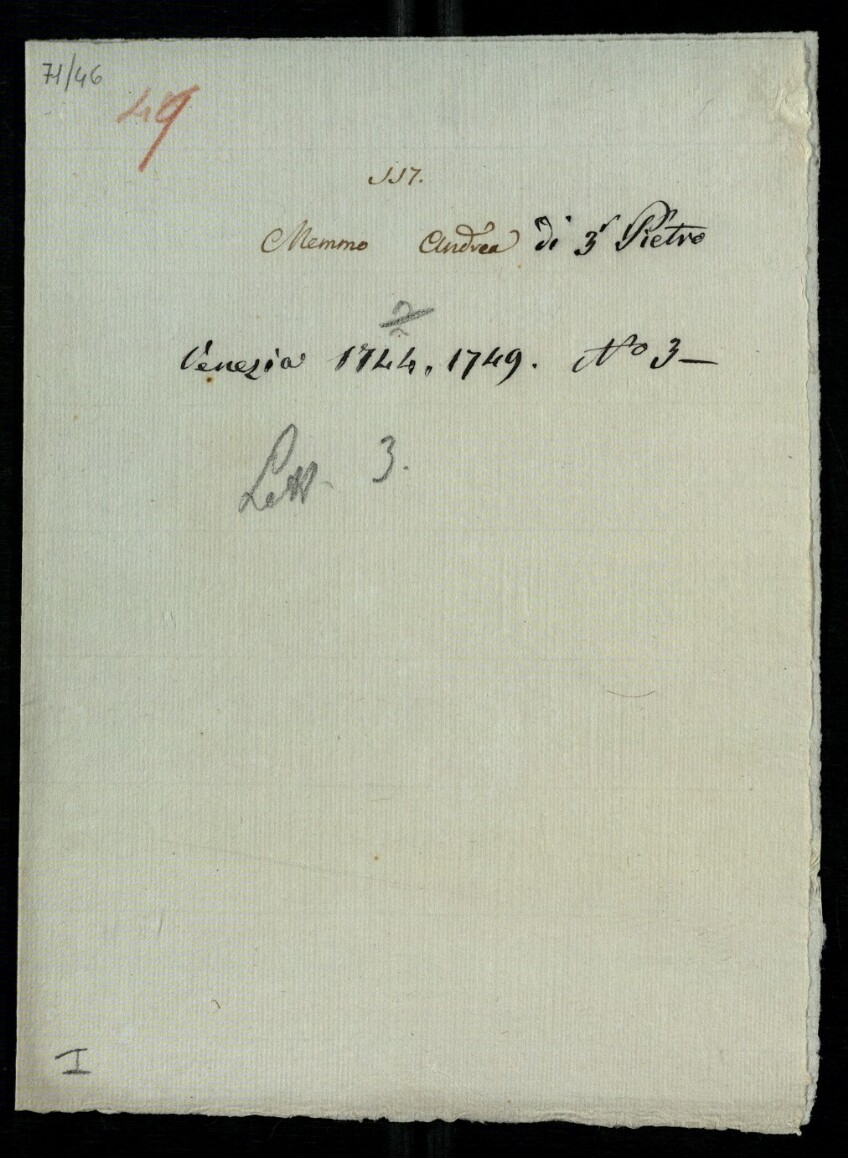 71/46
49
117.
Memmo Andrea di 3r Pietro
2
Venezia 1744, 1749. No 3—
Lett. 3.
I